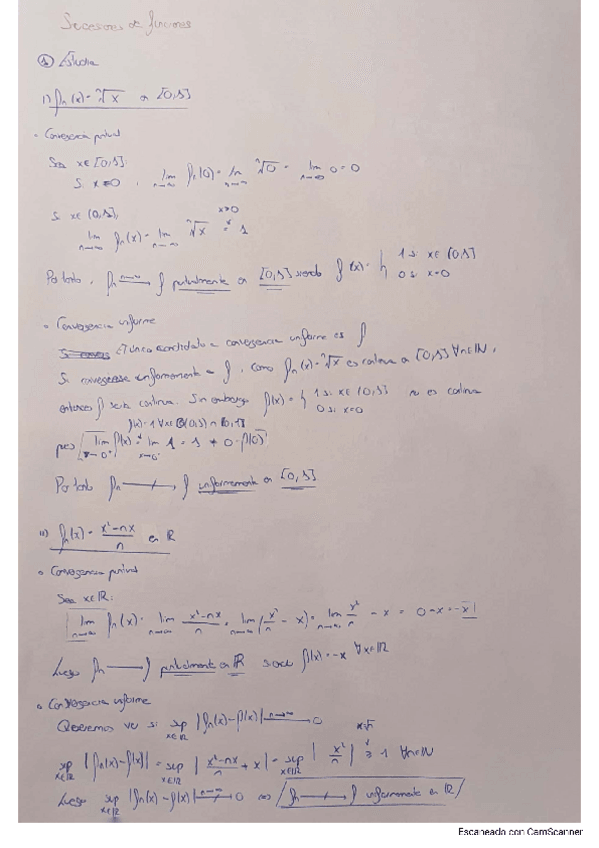 Sucesiones de funciones
① Estudia
i) fₙ(x) = ⁿ√x en [0,1]
• Convergencia puntual
Sea x∈[0,1]:
Si x=0, lim n→∞ fₙ(0) = lim n→∞ ⁿ√0 = lim n→∞ 0 = 0
Si x∈(0,1], x>0
lim n→∞ fₙ(x) = lim n→∞ ⁿ√x = 1
Por tanto, fₙ n→∞ → f puntualmente en [0,1] siendo f(x) = { 1 si x∈(0,1] 0 si x=0
• Convergencia uniforme
El único candidato a convergencia uniforme es f
Si convergiese uniformemente a f, como fₙ(x) = ⁿ√x es continua en [0,1] ∀n∈ℕ,
entonces f sería continua. Sin embargo f(x) = { 1 si x∈(0,1] 0 si x=0 no es continua
pues lim x→0⁺ f(x) = lim x→0⁺ 1 = 1 ≠ 0 = f(0)
Por tanto fₙ ↛ f uniformemente en [0,1]
ii) fₙ(x) = (x²-nx)/n en ℝ
• Convergencia puntual
Sea x∈ℝ:
lim n→∞ fₙ(x) = lim n→∞ (x²-nx)/n = lim n→∞ (x²/n - x) = lim n→∞ x²/n - x = 0-x = -x
Luego fₙ → f puntualmente en ℝ siendo f(x) = -x ∀x∈ℝ
• Convergencia uniforme
Queremos ver si sup x∈ℝ |fₙ(x)-f(x)| n→∞ → 0 x=√n
sup x∈ℝ |fₙ(x)-f(x)| = sup x∈ℝ |(x²-nx)/n + x| = sup x∈ℝ |x²/n| ≥ 1 ∀n∈ℕ
Luego sup x∈ℝ |fₙ(x)-f(x)| n→∞ ↛ 0 ⇒ fₙ ↛ f uniformemente en ℝ
Escaneado con CamScanner